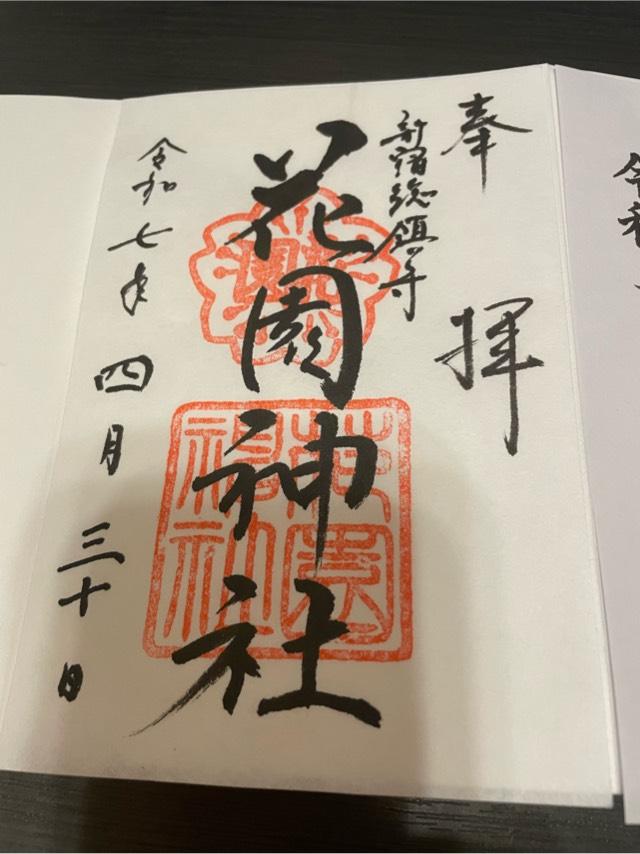 奉拝
新宿総鎮守
花園神社
花園神社
令和七年
四月
三十日
令和